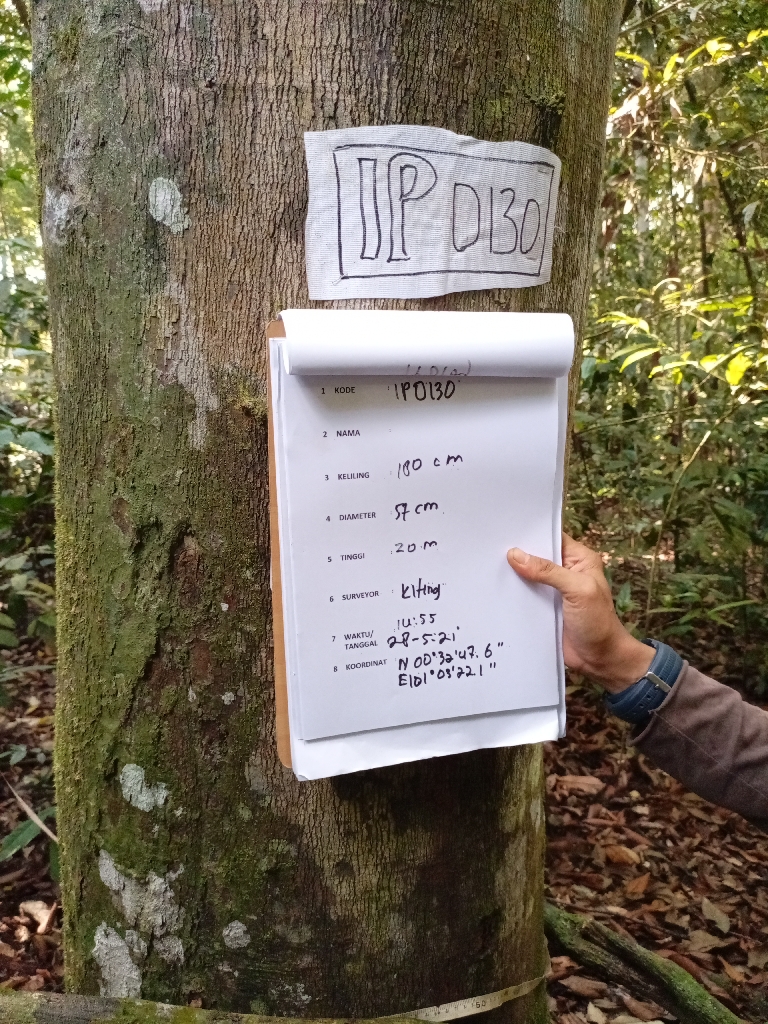 IP 0130
1 KODE : IP0130
2 NAMA
3 KELILING : 180 cm
4 DIAMETER : 57 cm
5 TINGGI : 20 m
6 SURVEYOR : Kiting
7 WAKTU/ TANGGAL : 14:55
28-5-21
8 KOORDINAT : N 00°32'47.6"
E101°03'22.1"